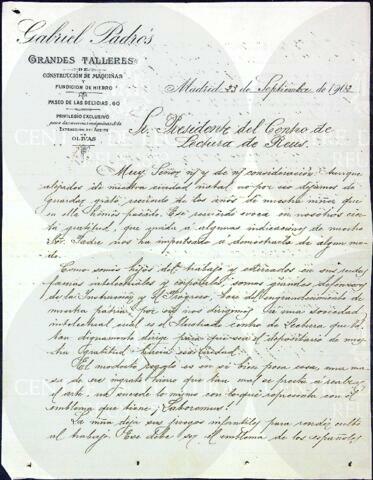 Gabriel Padrós
GRANDES TALLERES
DE
CONSTRUCCIÓN DE MÁQUINAS
Y
FUNDICIÓN DE HIERRO
PASEO DE LAS DELICIAS, 60
PRIVILEGIO EXCLUSIVO
EXTRACCIÓN DEL ACEITE
DE
OLIVAS
Madrid 23 de Septiembre de 191
Sr. Presidente del Centro de
Lectura de Reus.
Muy Señor n/ y de n/ consideración: Aunque
alejados de nuestra ciudad natal no por eso dejamos de
guardar grato recuerdo de los años de nuestra niñez que
en ella hemos pasado. Ese recuerdo evoca en nosotros cier
ta gratitud, que unida a algunas indicaciones de nuestro
Sr. Padre nos ha impulsado a demostrarla de algun mo-
do.
Como somos hijos del trabajo y educados en sus rudas
faenas intelectuales y corporales, somos grandes defensores
de la Instrucción y el Progreso, base del engrandecimiento de
nuestra patria por eso nos dirigimos a una sociedad
intelectual cual es el Ilustrado centro de Lectura que V.
tan dignamente dirige para que sea el depositario de nues-
tra gratitud hacia esa ciudad.
El modesto regalo es en si bien poca cosa, una ma-
sa de ese ingrato hierro que tan mal se presta a realzar
el arte, no sucede lo mismo con lo que representa con el
emblema que tiene ¡Laboremus!
La niña deja sus juegos infantiles para rendir culto
al trabajo. Ese debe ser el emblema de los españoles